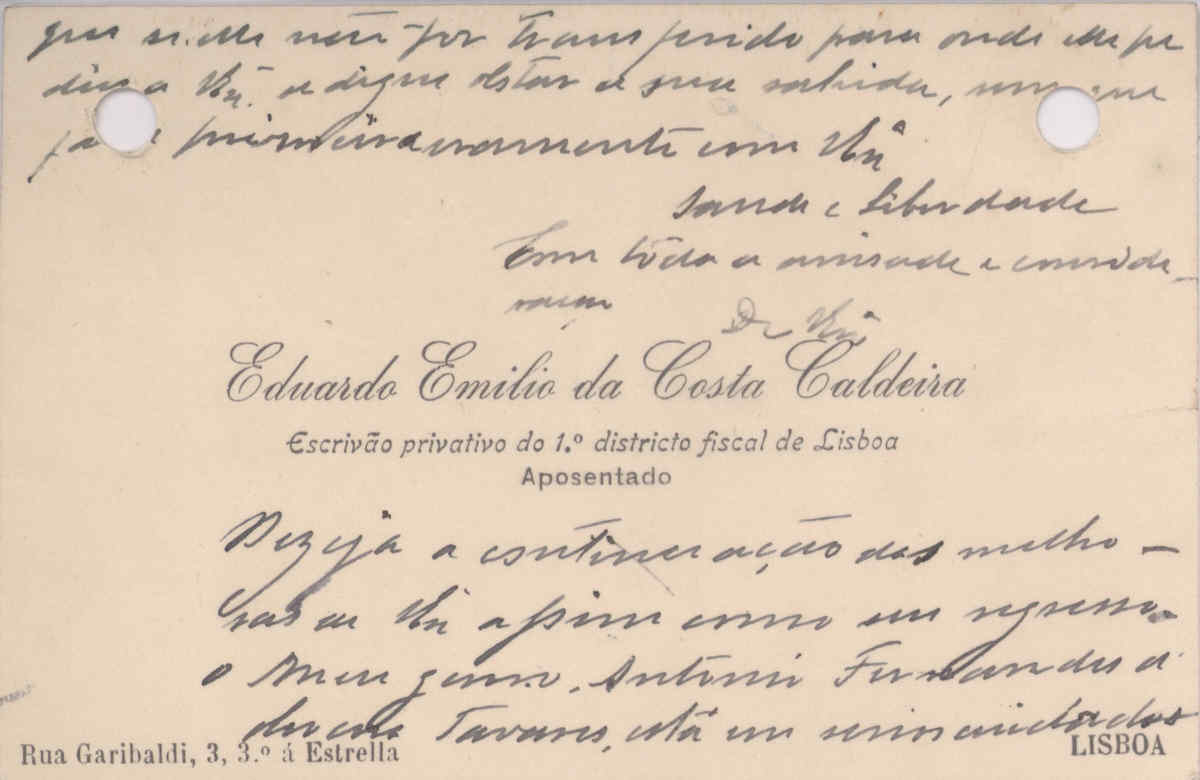 que se elle não for transferido para onde elle pe
diu a V.Exª. e digne estar a sua sahida, sem que
primeiramente com V.Exª
Saude e Liberdade
Com tôda a amisade e conside-
raçao
De V.Exª
Eduardo Emilio da Costa Caldeira
Escrivão privativo do 1.º districto fiscal de Lisboa
Aposentado
Dezeja a continuação das melho-
ras de V.Exª assim como seu regresso.
O meu genro, Antonio Fernandes d'
Tavares, está em serios cuidados
Rua Garibaldi, 3, 3.º á Estrella
LISBOA